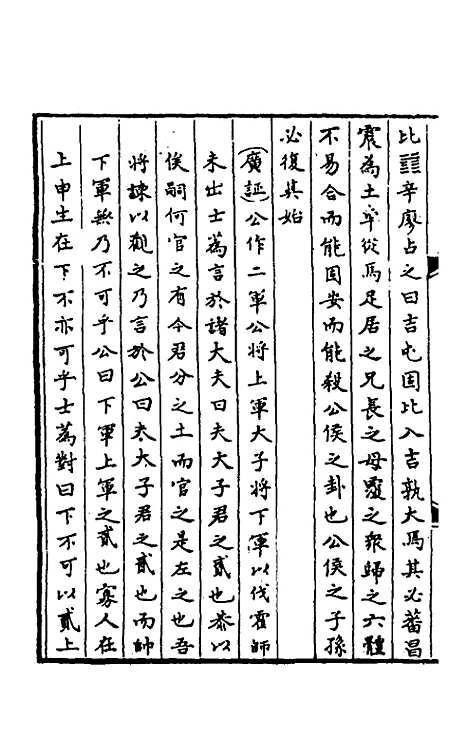 比䷇辛廖占之曰吉屯固比入吉孰大焉其必蕃昌
震為土車從馬足居之兄長之母覆之衆歸之六體
不易合而能固安而能殺公侯之卦也公侯之子孫
必復其始
廣証公作二軍公將上軍大子將下軍以伐霍師
未出士蒍言於諸大夫曰夫大子君之貳也恭以
俟嗣何官之有今君分之土而官之是左之也吾
將諫以觀之乃言於公曰夫大子君之貳也而帥
下軍無乃不可乎公曰下軍上軍之貳也寡人在
上申生在下不亦可乎士蒍對曰下不可以貳上